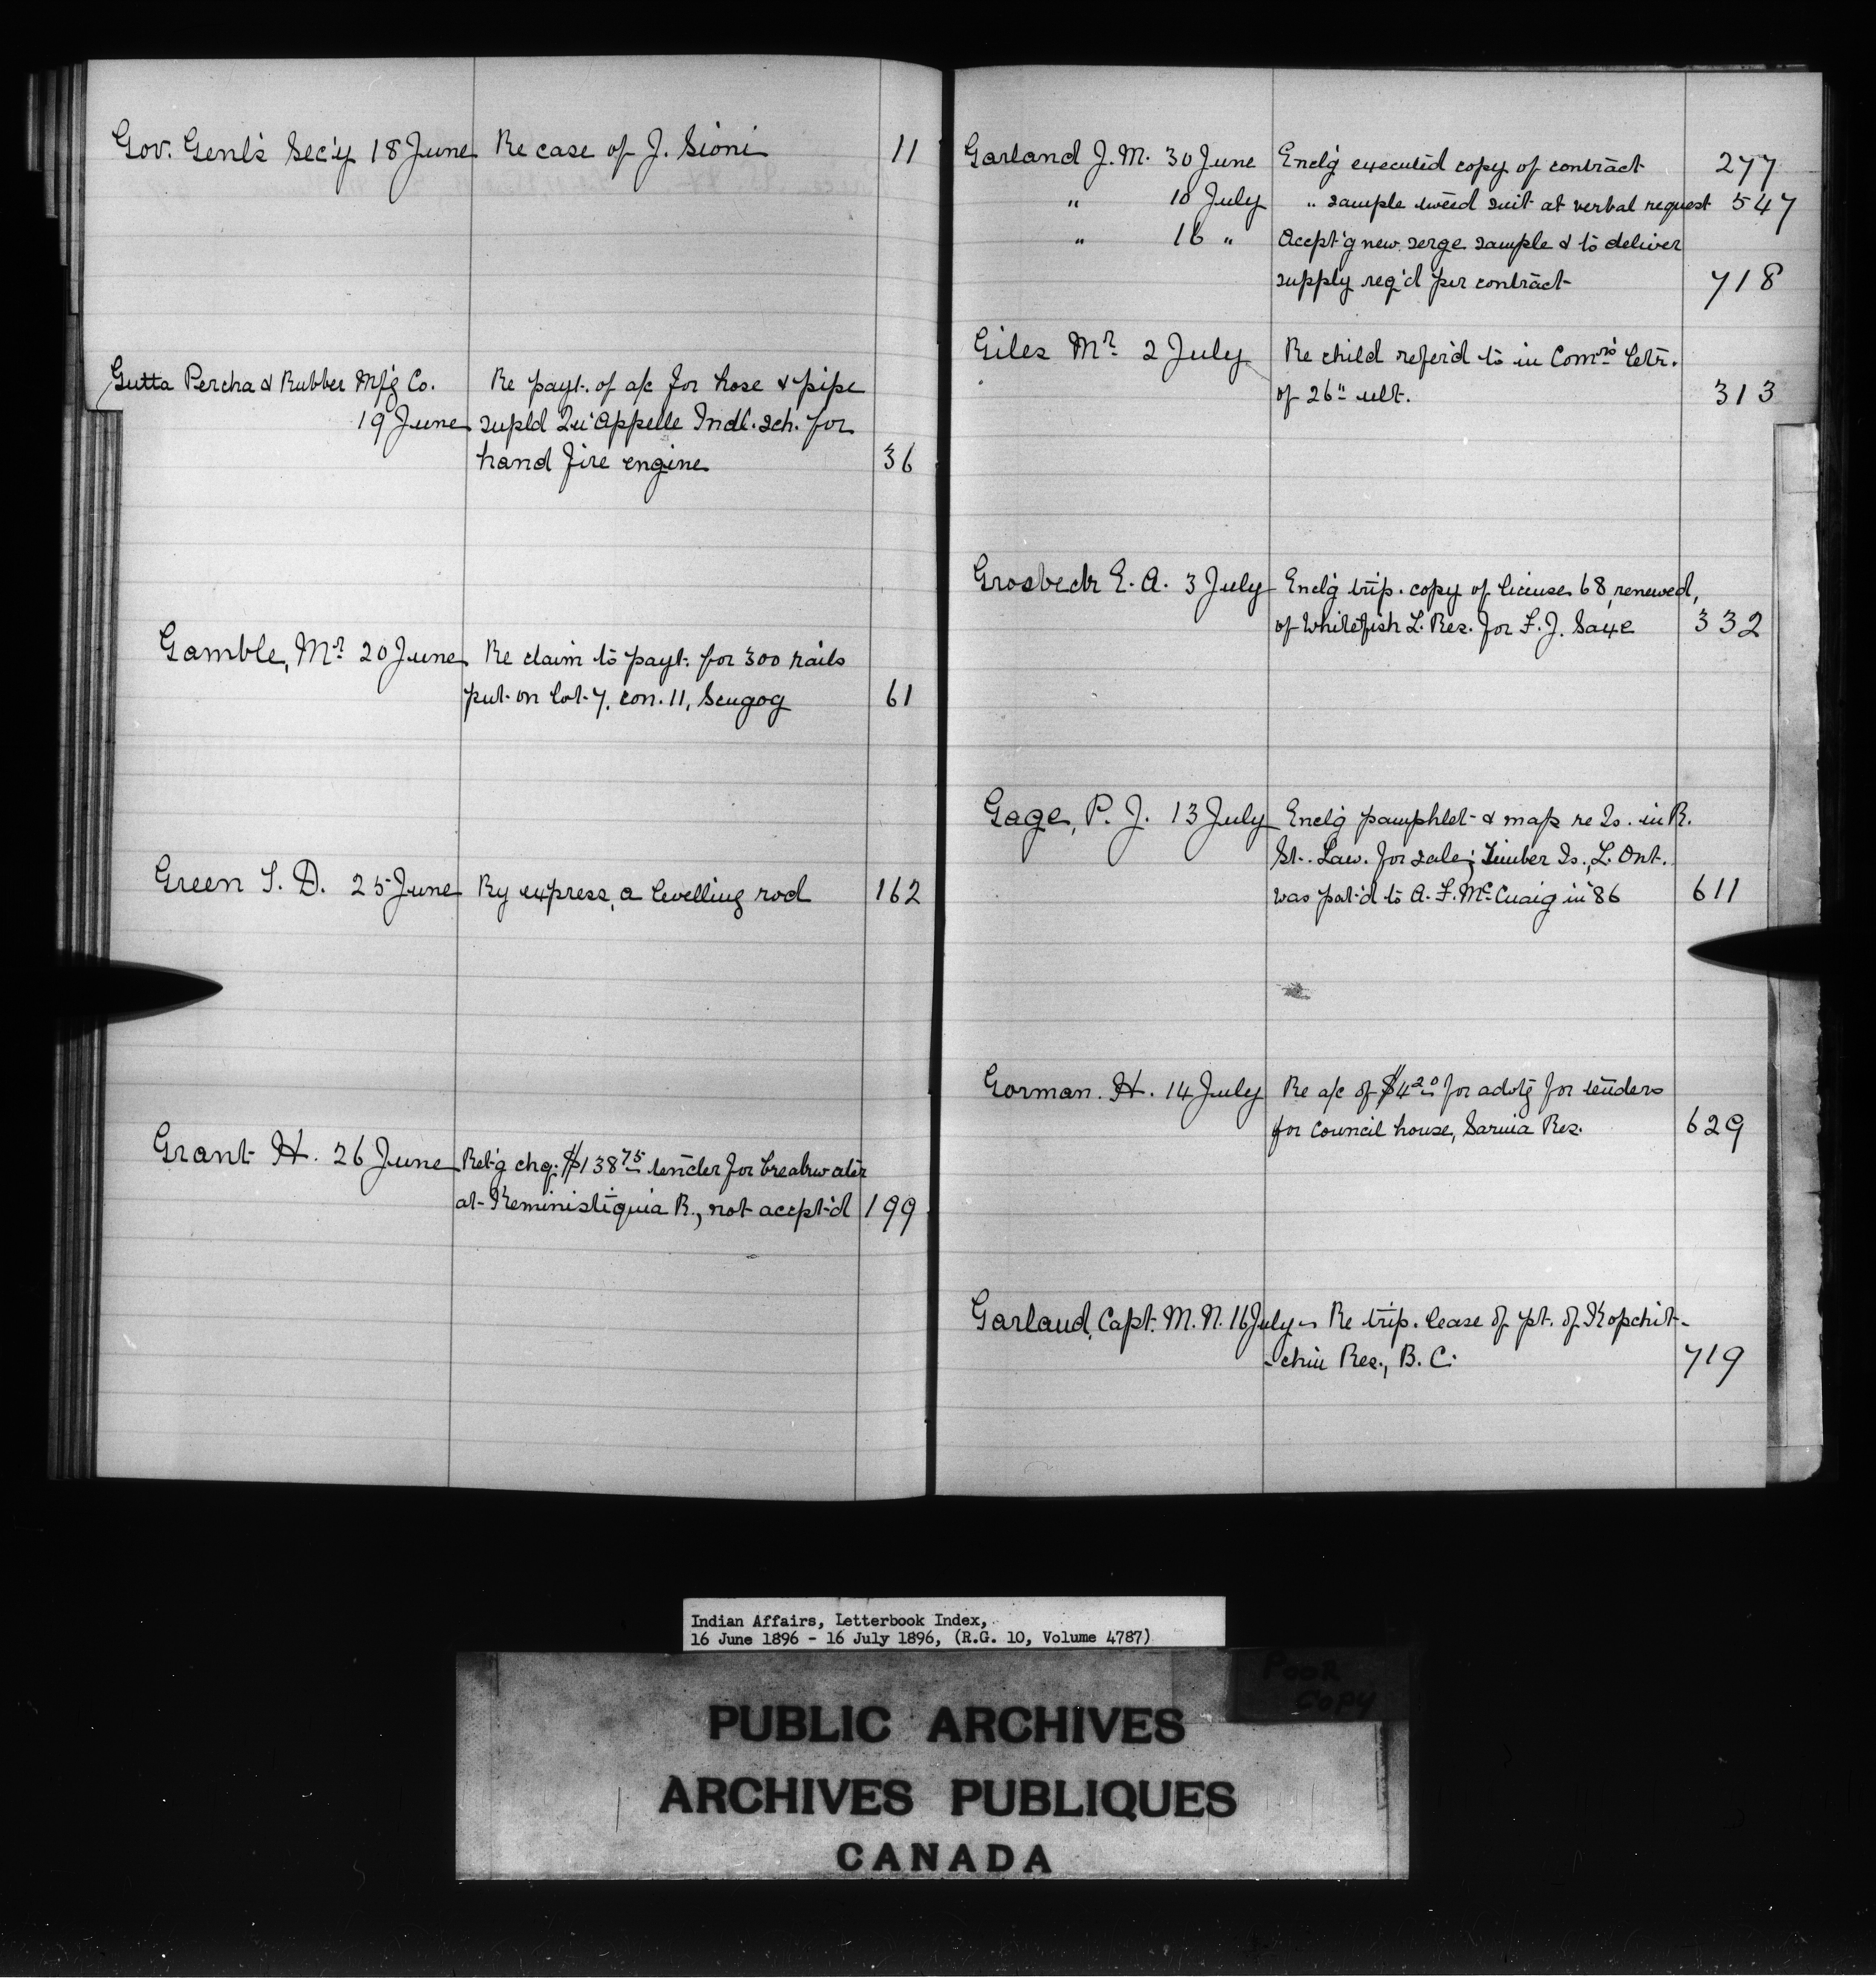 Gov. Genl's Sec'y 18 June Re case of J. Sioni 11
Gutta Percha & Rubber Mf'g Co. Re payt. of a/c for hose & pipe
19 June supld Qu'Appelle Indl. sch. for
hand fire engine 36
Gamble, Mr. 20 June Re claim to payt. for 300 rails
put on lot 7, con. 11, Scugog 61
Green S. D. 25 June By express, a levelling rod 162
Grant H. 26 June Ret'g chq. $138 75 tender for breakwater
at Keministiquia R., not accpt'd 199
Garland J. M. 30 June Encl'g executed copy of contract 277
" 10 July " sample tweed suit at verbal request 547
" 16 " Accpt'g new serge sample & to deliver
supply req'd per contract 718
Giles Mr. 2 July Re child refer'd to in Comrs' letr.
of 26" ult. 313
Grosbeck E. A. 3 July Encl'g trip. copy of license 68, renewed,
of Whitefish L. Res. for F. J. Saxe 332
Gage, P. J. 13 July Encl'g pamphlet & map re Is. in R.
St. Law. for sale; Timber Is., L. Ont.
was pat'd to A. F. McCuaig in '86 611
Gorman. H. 14 July Re a/c of $4 20 for advtg for tenders
for Council house, Sarnia Res. 629
Garland, Capt. M. N. 16 July Re trip. lease of pt. of Kopchit-
-chin Res., B. C. 719
Indian Affairs, Letterbook Index,
16 June 1896 - 16 July 1896, (R.G. 10, Volume 4787)
POOR
COPY
PUBLIC ARCHIVES
ARCHIVES PUBLIQUES
CANADA